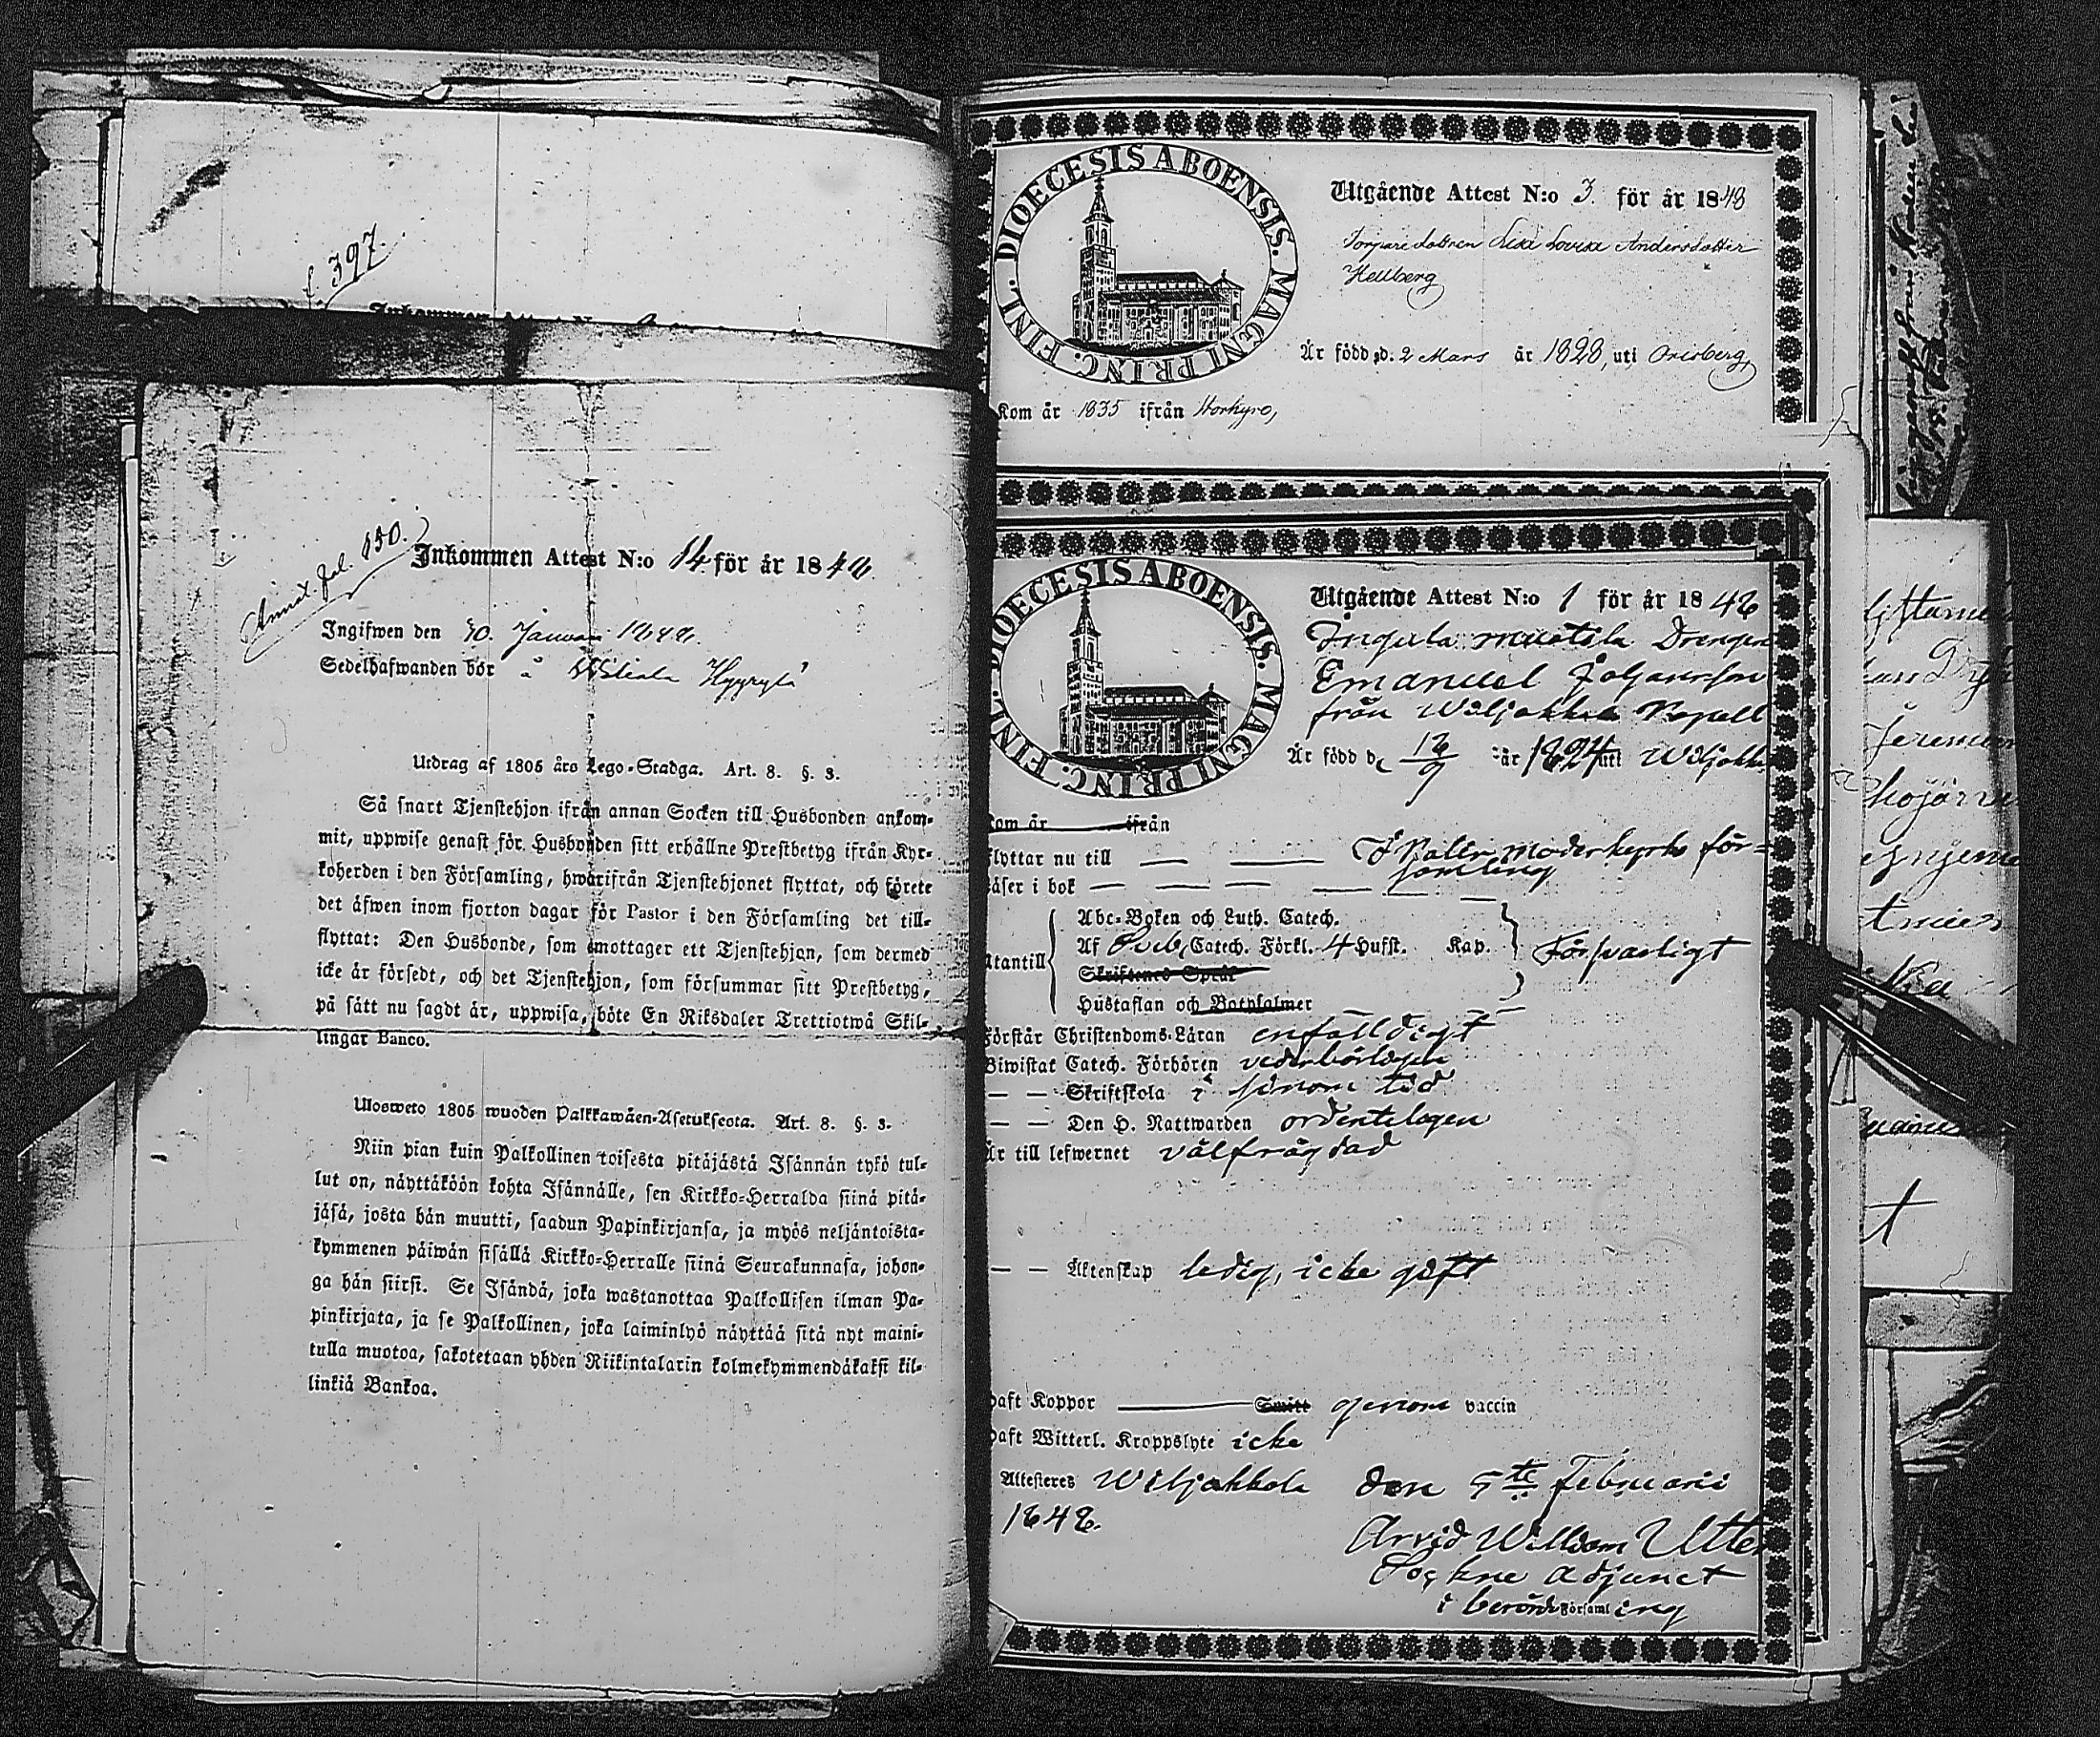 f. 397.
Annot. fol. 150.
Inkommen Attest N:o 14 för år 1848.
Ingifwen den 30. Januari 1848.
Sedelhafwanden bor å
Utdrag af 1805 års Lego-Stadga. Art. 8. §. 3.
Så snart Tjenstehjon ifrån annan Socken till Husbonden ankom-
mit, uppwise genast för Husbonden sitt erhållne Prestbetyg ifrån Kyr-
koherden i den Församling, hwarifrån Tjenstehjonet flyttat, och förete
det äfwen inom fjorton dagar för Pastor i den Församling det till-
flyttat: Den Husbonde, som emottager ett Tjenstehjon, som dermed
icke är försedt, och det Tjenstehjon, som försummar sitt Prestbetyg,
på sätt nu sagdt är, uppwisa, böte En Riksdaler Trettiotwå Skil-
lingar Banco.
Ulosweto 1805 wuoden Palkkawäen-Asetuksesta. Art. 8. §. 3.
Niin pian kuin Palkollinen toisesta pitäjästä Isännän tykö tul-
lut on, näyttäköön kohta Isännälle, sen Kirkko-Herralda siinä pitä-
jäsä, josta hän muutti, saadun Papinkirjansa, ja myös neljäntoista-
kymmenen päiwän sisällä Kirkko-Herralle siinä Seurakunnasa, johon-
ga hän siirsi. Se Isändä, joka wastanottaa Palkollisen ilman Pa-
pinkirjata, ja se Palkollinen, joka laiminlyö näyttää sitä nyt maini-
tulla muotoa, sakotetaan yhden Riikintalarin kolmekymmendäkaksi kil-
linkiä Bankoa.
DIOECESIS ABOENSIS. MAGNI PRINC. FINL.
Utgående Attest N:o 3. för år 1848
Torpare dottren Lisa Lovisa Andersdotter
Hellberg
Är född d. 2 Mars år 1828, uti Orisberg,
Kom år 1835 ifrån Storkyro,
DIOECESIS ABOENSIS. MAGNI PRINC. FINL.
Utgående Attest N:o 1 för år 1848
Drengen
Emanuel Johansson
från Wiljakkala Kapell
Är född d. 18/9 år 1824 uti Wiljakka
Kom år ifrån
flyttar nu till moderkyrko för=
samling
läser i bok
Abc-Boken och Luth. Catech.
Af Sveb. Catech. Förkl. 4 Hufst. Kap.
Utantill Försvarligt
Skriftenes Språk
Hustaflan och Botpsalmer
Förstår Christendoms-Läran enfaldigt
Biwistat Catech. Förhören vederbörligen
— — Skriftskola i sinom tid
— — Den H. Nattwarden ordenteligen
Är till lefwernet välfrägdad
— — Äktenskap ledig, icke gift
haft Koppor Smitt genom vaccin
haft Witterl. Kroppslyte icke
Attesteres Wiljakkala den 5te Februarii
1848.
Arvid William Utter
Sockne adjunct
i berörde Församling